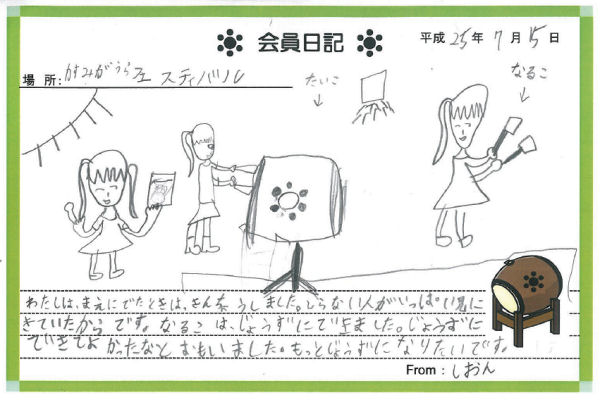 会員日記
平成25年7月15日
場所:かすみがうらフェスティバル
たいこ
なるこ
わたしは、まえにでたときは、きんちょうしました。しらない人がいっぱい見に
きていたからです。なるこは、じょうずにできました。じょうずに
できてよかったなとおもいました。もっとじょうずになりたいです。
From:しおん